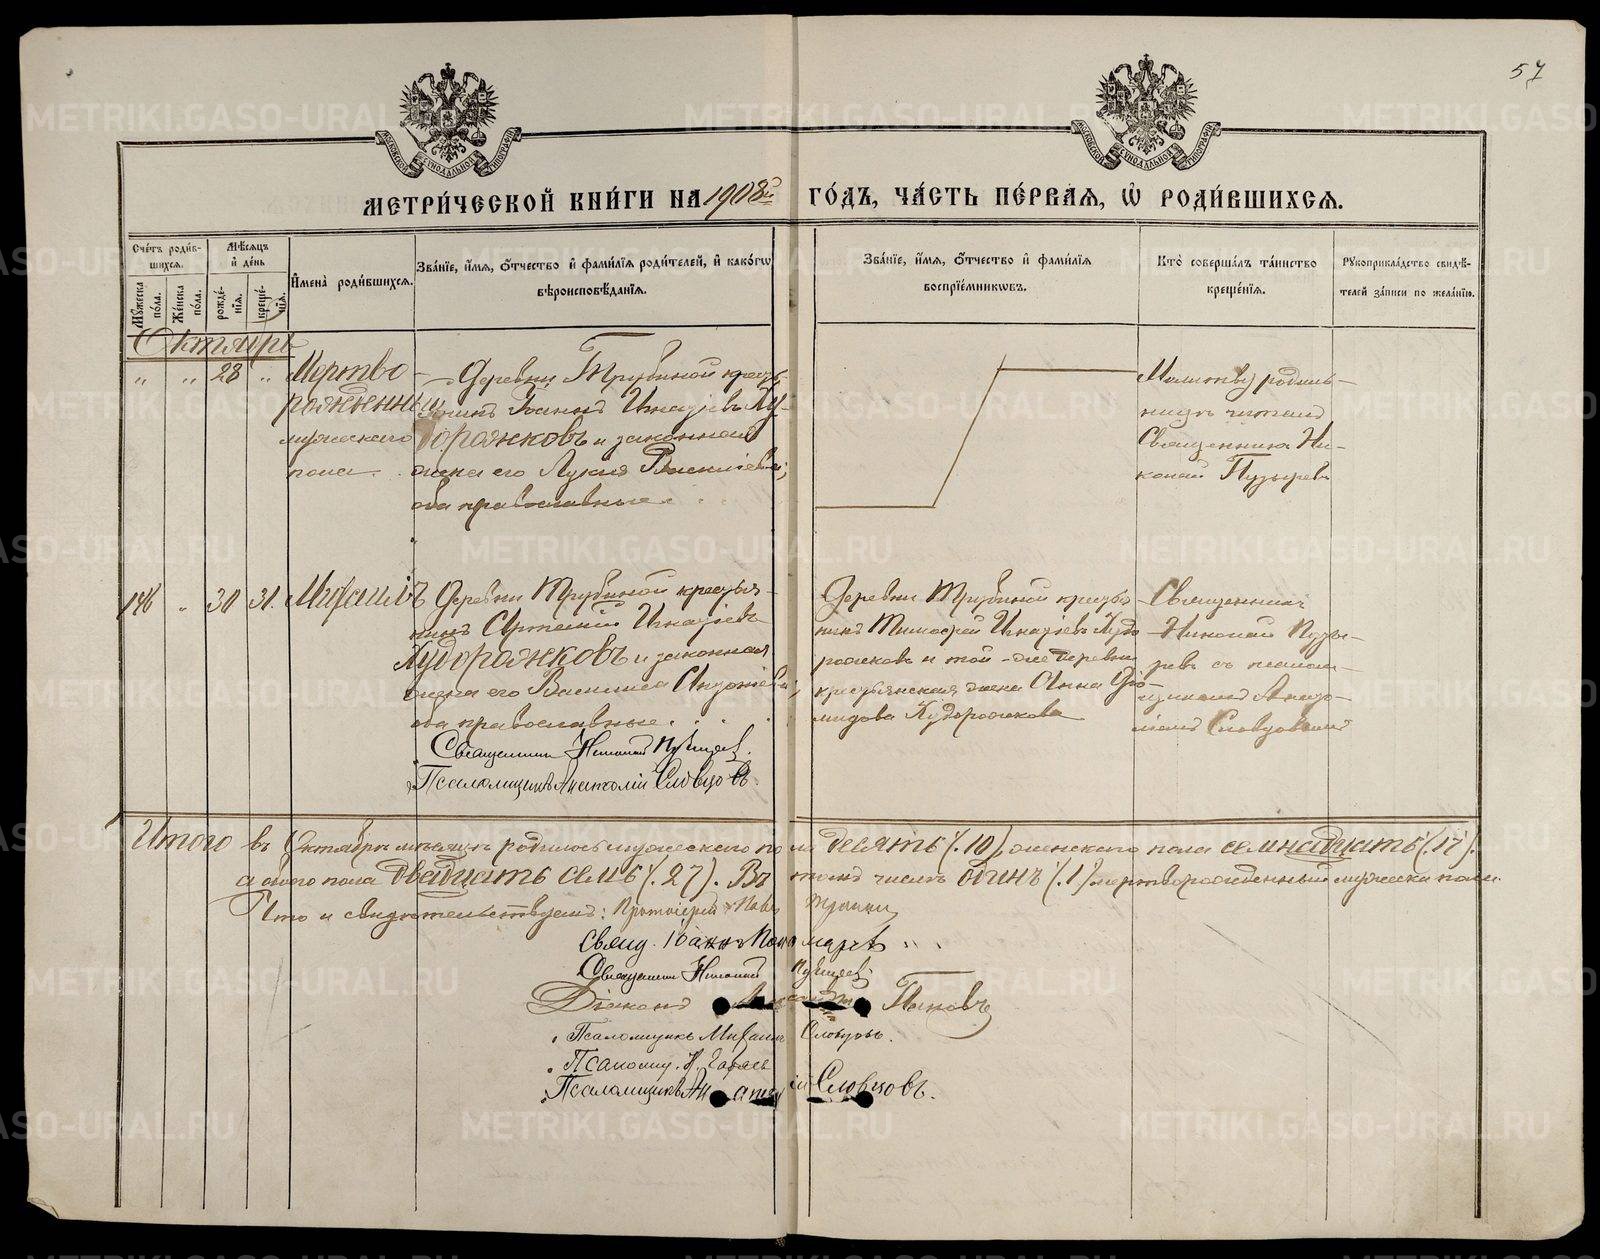 57
МЕТРИ́ЧЕСКОЙ КНИ́ГИ НА 1908й ГО́ДЪ, ЧА́СТЬ ПЕ́РВАЯ, Ѡ҆ РОДИ́ВШИХСЯ.
Сче́тъ роди́в-
шихся.
Му́жеска по́ла.
Же́нска по́ла.
Мѣ́сяцъ
и҆ де́нь
рожде́-
нїя.
креще́-
нїя.
И҆мена̀ роди́вшихся.
Зва́нїе, и҆́мя, ѻ҆́тчество и҆ фами́лїя роди́телей, и҆ како́гѡ
вѣроисповѣ́данїя.
Зва́нїе, и҆́мя, ѻ҆́тчество и҆ фами́лїя
воспрїе́мникѡвъ.
Кто̀ соверша́лъ та́инство
креще́нїя.
Рꙋкоприкла́дство свидѣ́-
телей за́писи по жела́нїю.
Октябрь
" " 28 "
Мертво-
рожденный
мужескаго
пола
Деревни Трубиной кресть-
янинъ Іоаннъ Игнатіевъ Ху-
дорожковъ и законная
жена его Лукія Василіева;
оба православные.
Молитву родиль-
ницѣ читалъ
Священникъ Ни-
колай Пузыревъ
146 " 30 31. Михаилъ
Деревни Трубиной крестья-
нинъ Артемій Игнатіевъ
Худорожковъ и законная
жена его Василиса
оба православные.
Священникъ Николай Пузырев.
Псаломщикъ Анатолій Словцовъ.
Деревни Трубиной крестья-
нинъ Тимофей Игнатіевъ Худо-
рожковъ и той-же деревни
крестьянская жена Анна Дѳ-
мидова Худорожкова
Священникъ
Николай Пузы-
ревъ съ псалом-
щикомъ Анато-
ліемъ Словцовымъ
Итого въ Октябрѣ мѣсяцѣ родилось мужескаго пола десять (10), женскаго пола семнадцать (17).
а обоего пола двадцать семь (27). Въ томъ числѣ одинъ (1) мертворожденный мужеска пола.
Что и свидѣтельствуемъ: Протоіерей
Свящ. Іоаннъ Пономарев
Священникъ Николай Пузырев.
Діаконъ Поповъ
Псаломщикъ Михаилъ Словцовъ.
Псаломщ. Н.
Псаломщикъ Анатолій Словцовъ.
METRIKI.GASO-URAL.RU